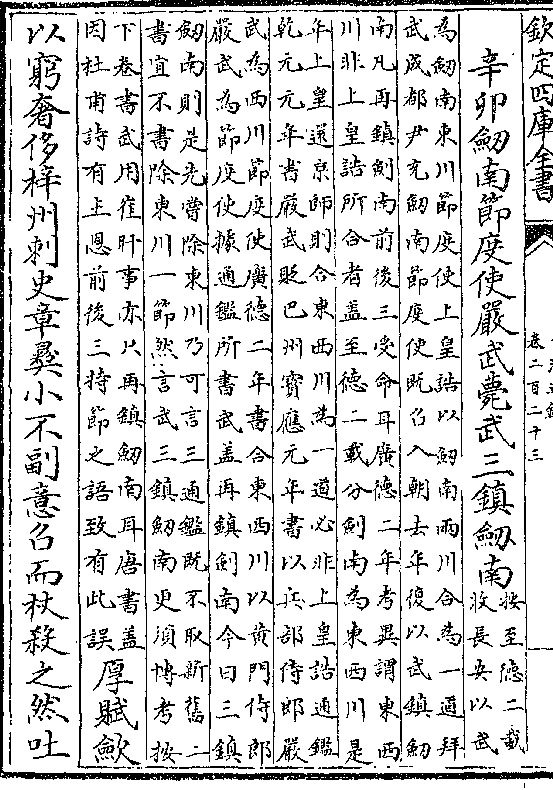 欽定四庫全書
卷二百二十三
辛卯劒南節度使嚴武薨武三鎮劒南
按至德二載
收長安以武
為劒南東川節度使上皇誥以劒南兩川合為一道拜
武成都尹充劒南節度使既召入朝去年復以武鎮劒
南凡再鎮劒南前後三受命耳廣德二年考異謂東西
川非上皇誥所合者蓋至德二載分劒南為東西川是
年上皇還京師則合東西川為一道必非上皇誥通鑑
乾元元年書嚴武貶巴州寶應元年書以兵部侍郎嚴
武為西川節度使廣德二年書合東西川以黄門侍郎
嚴武為節度使據通鑑所書武蓋再鎮劒南今曰三鎮
劒南則是先嘗除東川乃可言三通鑑既不取新舊二
書宜不書除東川一節然言武三鎮劒南更須博考按
下卷書武用崔旰事亦只再鎮劒南耳唐書蓋
因杜甫詩有主恩前後三持節之語致有此誤
厚賦歛
以窮奢侈梓州刺史章彞小不副意召而杖殺之然吐